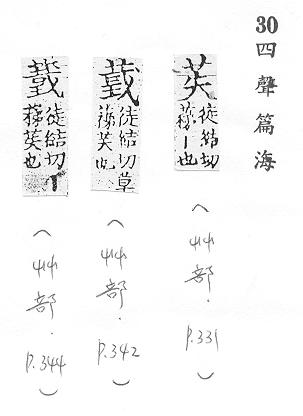 30 四聲篇海
苵
徒結切
蕛丨也
(艸部.P.331)
徒結切草
蕛苵也
(艸部.P.342)
徒結切
蕛苵也
(艸部.P.344)